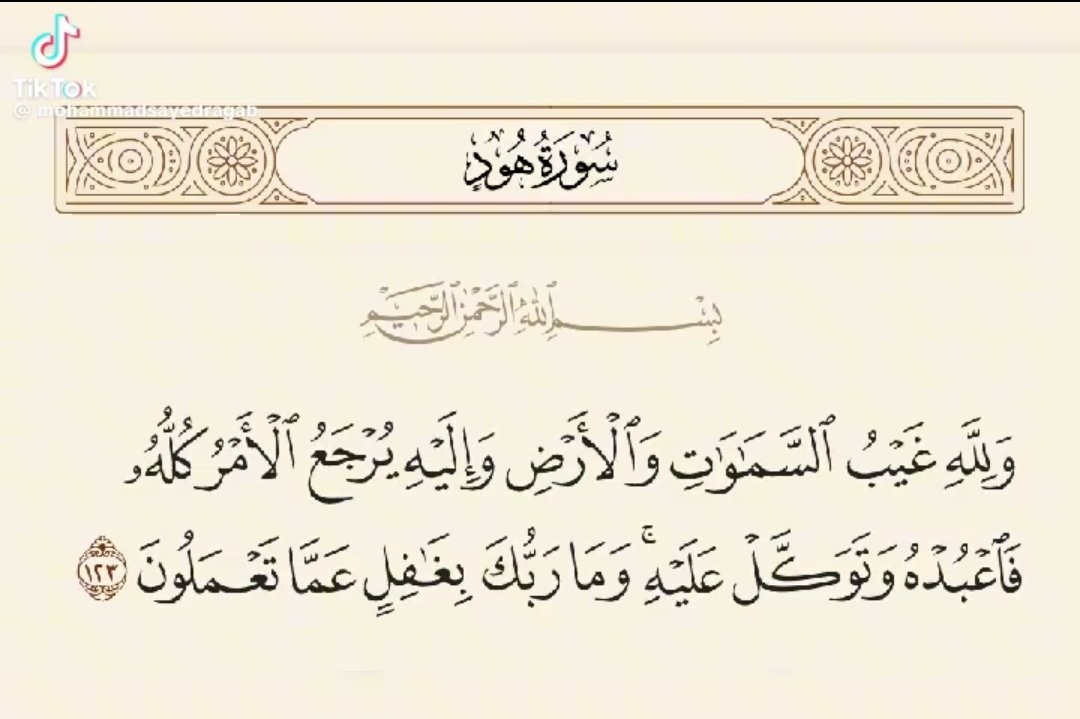 TikTok
@ mohammadsayedragab
سُورَةُ هُودٍ
بِسْمِ ٱللَّهِ ٱلرَّحْمَٰنِ ٱلرَّحِيمِ
وَلِلَّهِ غَيْبُ ٱلسَّمَٰوَٰتِ وَٱلْأَرْضِ وَإِلَيْهِ يُرْجَعُ ٱلْأَمْرُ كُلُّهُۥ
فَٱعْبُدْهُ وَتَوَكَّلْ عَلَيْهِ ۚ وَمَا رَبُّكَ بِغَٰفِلٍ عَمَّا تَعْمَلُونَ ١٢٣